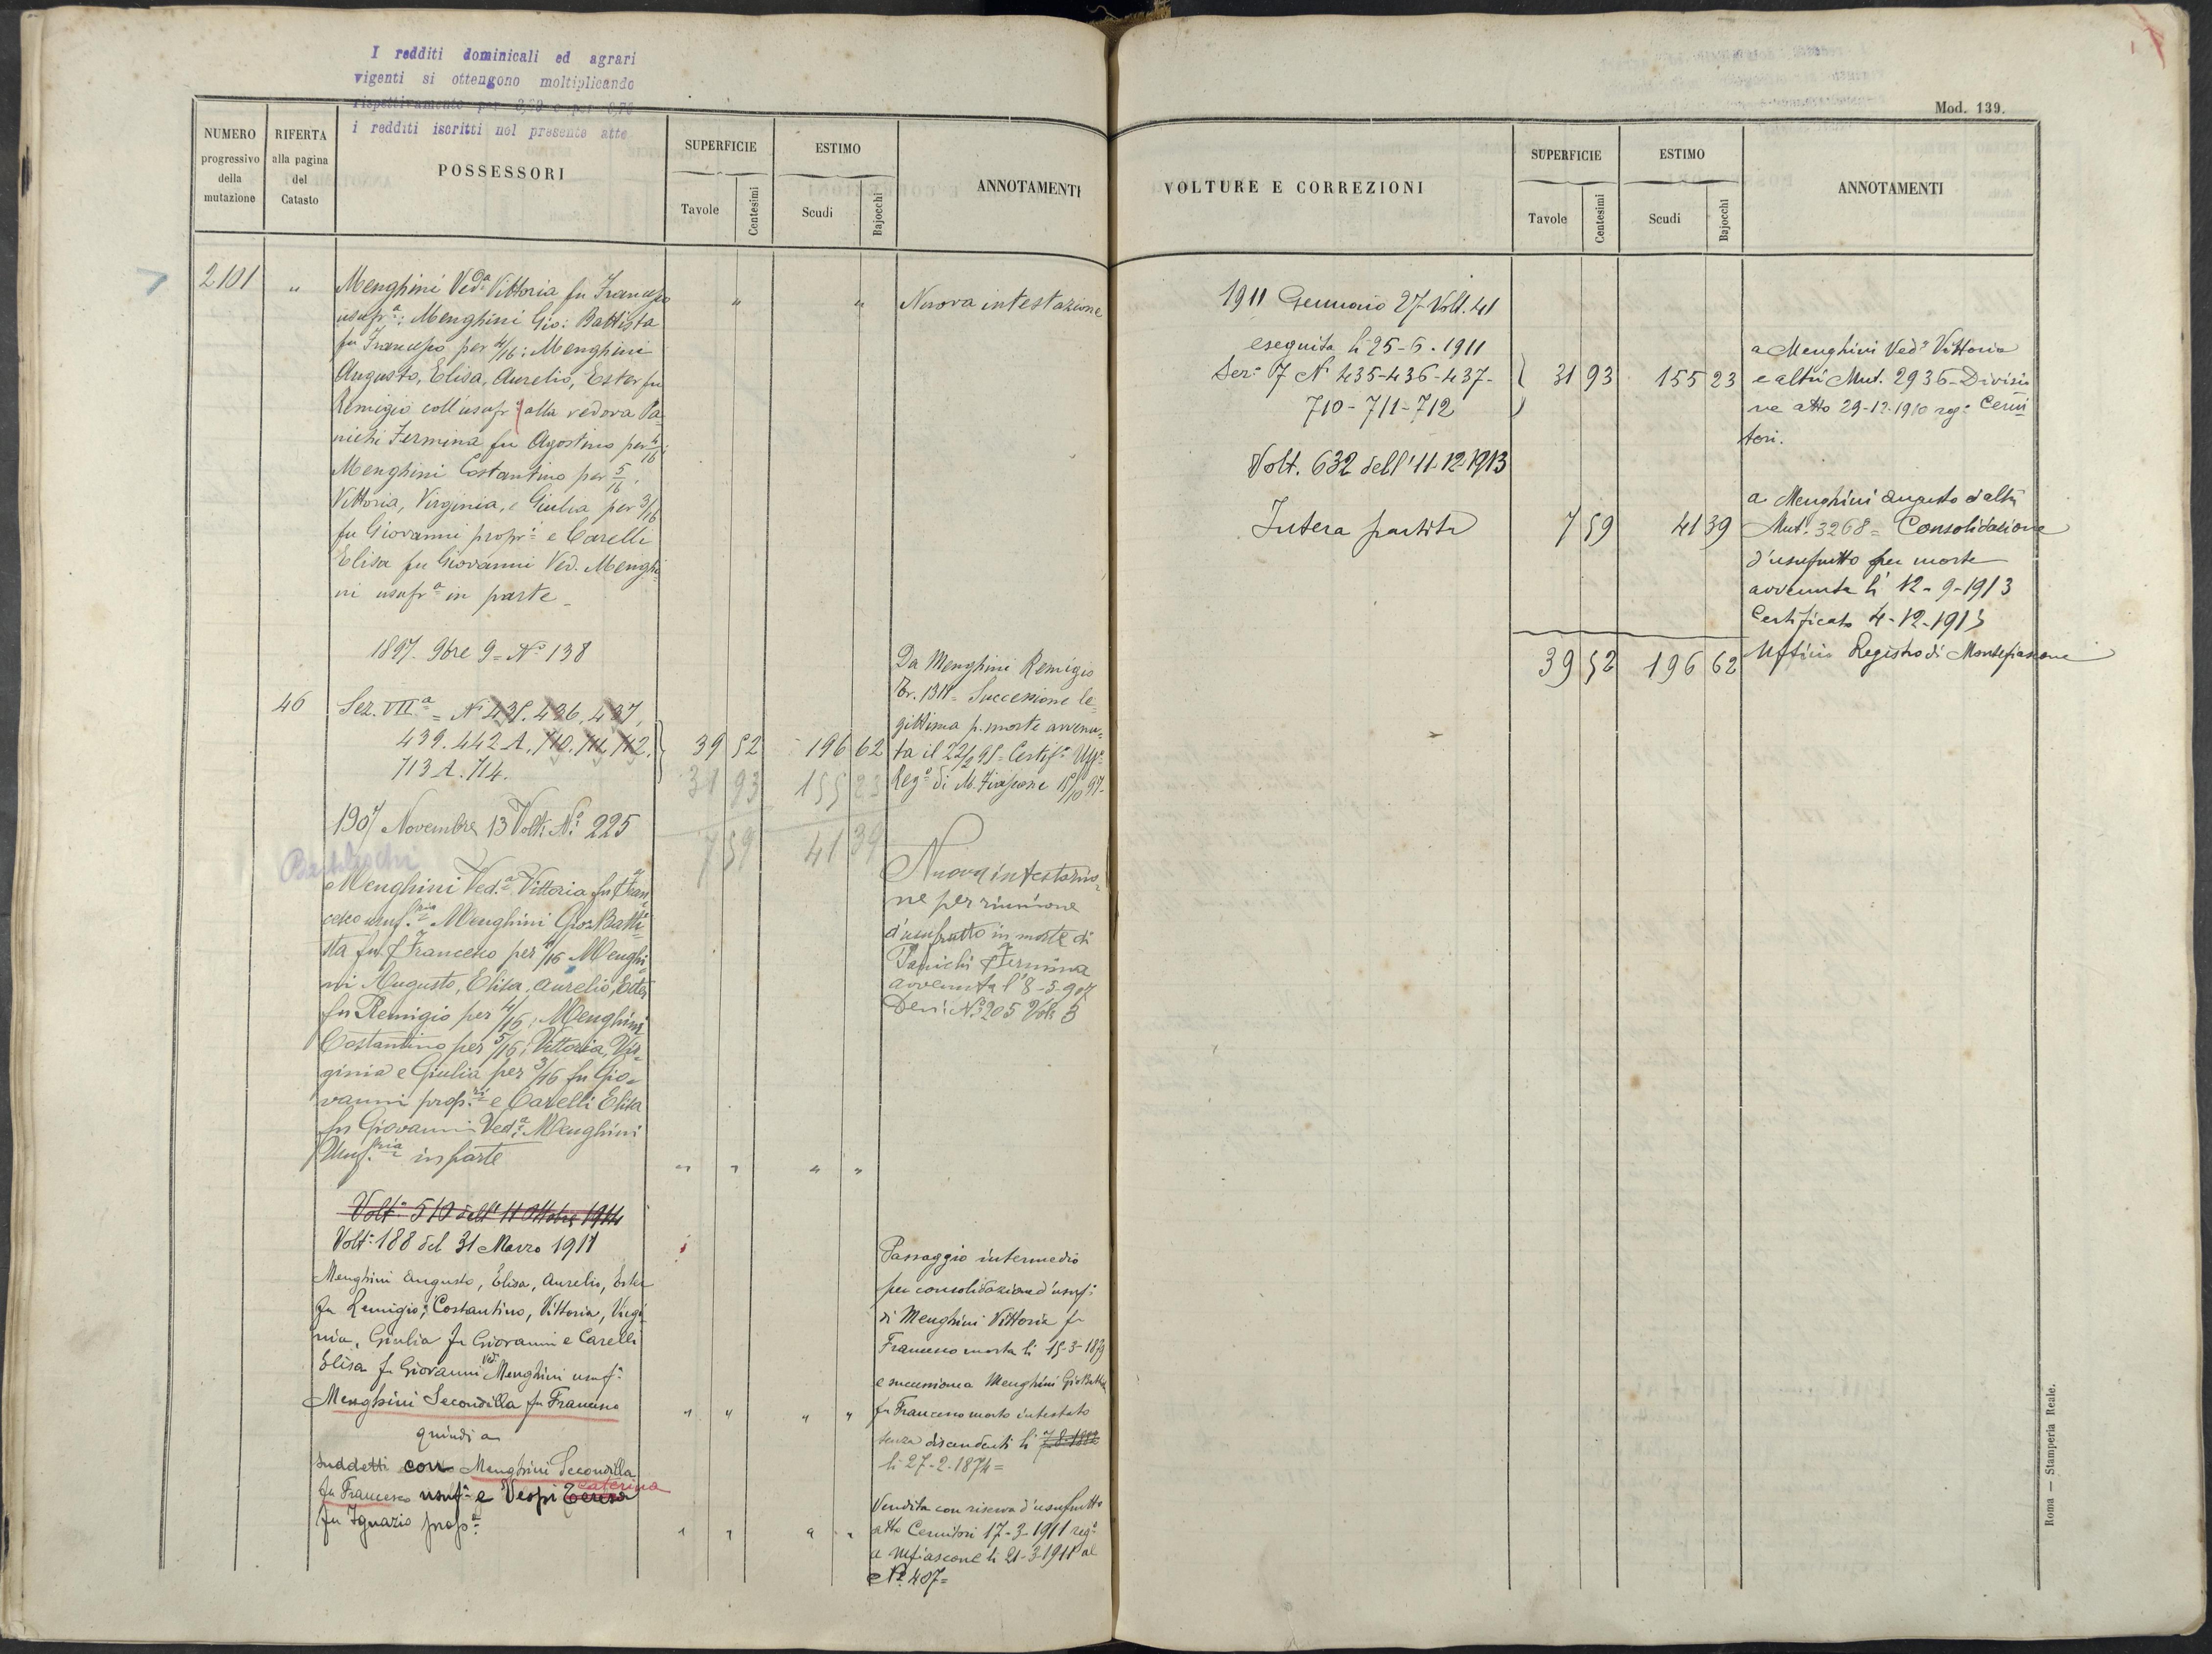 I redditi dominicali ed agrari
vigenti si ottengono moltiplicando
rispettivamente per
i redditi iscritti nel presente atto
NUMERO progressivo della mutazione
RIFERTA alla pagina del Catasto
POSSESSORI
SUPERFICIE
Tavole Centesimi
ESTIMO
Scudi Bajocchi
ANNOTAMENTI
2101 " Menghini Ved.a Vittoria fu Francesco " " Nuova intestazione
usufr.a; Menghini Gio: Battista
fu Francesco per 4/16; Menghini
Augusto, Elisa, Aurelio, Ester fu
Remigio coll'usufr.o alla vedova Pa=
nichi Fermina fu Agostino per 4/16;
Menghini Costantino per 5/16,
Vittoria, Virginia, e Giulia per 3/16
fu Giovanni propr.i e Carelli
Elisa fu Giovanni Ved. Menghi=
ni usufr.a in parte_
1897. 9bre 9= N.o 138
46 Sez. VII.a = N.i 435. 436. 437,
439. 442 A. 710. 711. 712.
713 A. 714.
39 52 196 62
31 93 155 23
7 59 41 39
Da Menghini Remigio
Succesione le=
gittima p. morte avvenu=
ta il Certif.o Uff.o
Reg.o di M.Fiascone
1907 Novembre 13 Volt. N.o 225
Menghini Ved.a Vittoria fu Fran=
cesco usuf.ria Menghini Gio: Batti=
sta fu Francesco per 4/16 Menghi=
ni Augusto, Elisa, Aurelio, Ester
fu Remigio per 4/16; Menghini
Costantino per 5/16; Vittoria, Vir=
ginia e Giulia per 3/16 fu Gio=
vanni prop.ri e Carelli Elisa
fu Giovanni Ved.a Menghini
Usuf.ria in parte " " " "
Nuova intestazio=
ne per riunione
d'usufrutto in morte di
Panichi Fermina
avvenuta l'8-5-907
Den: N.o 205 Vol. 3
Volt.a 510 dell'11 Ottobre 1914
Volt.a 188 del 31 Marzo 1911
Menghini Augusto, Elisa, Aurelio, Ester
fu Remigio; Costantino, Vittoria, Virgi=
nia, Giulia fu Giovanni e Carelli
Elisa fu Giovanni Ved. Menghini usuf.a
Menghini Secondilla fu Francesco " " " "
quindi a
suddetti con Menghini Secondilla
fu Francesco usuf.a e Vespi Teresa Caterina
fu Ignazio prop.a " " " "
Passaggio intermedio
per consolidazione d'usuf:
di Menghini Vittoria fu
Francesco morta li 15-3-1879
e successione a Menghini Gio Batta
fu Francesco morto intestato
senza discendenti li
li 27-2-1874=
Vendita con riserva d'usufrutto
atto Cernitori 17-3-1911 reg.o
a Mfiascone li 21-3-1911 al
N.o 407=
Mod. 139.
VOLTURE E CORREZIONI
SUPERFICIE
Tavole Centesimi
ESTIMO
Scudi Bajocchi
ANNOTAMENTI
1911 Gennaio 27 Volt. 41
eseguita li 25-6-1911
Sez.e 7 N.i 435-436-437-
710-711-712
31 93 155 23
a Menghini Ved.a Vittoria
e altri Mut. 2936-Divisio
ne atto 29-12-1910 rog.o Cerni
tori.
Volt. 632 dell'11-12-1913
Intera partita 7 59 41 39
a Menghini Augusto ed altri
Mut. 3268= Consolidazione
d'usufrutto per morte
avvenuta li 12-9-1913
Certificato 4-12-1913
Ufficio Registro di Montefiascone
39 52 196 62
Roma — Stamperia Reale.